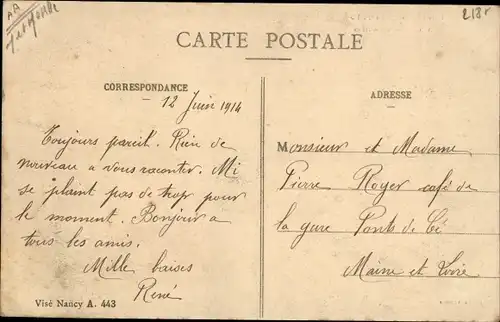 AA
218r
CARTE POSTALE
CORRESPONDANCE
12 Juin 1914
Toujours pareil. Rien de
nouveau a vous raconter. Mi
se plaint pas de trop pour
le moment. Bonjour a
tous les amis.
Mille baises
René
Visé Nancy A. 443
ADRESSE
Monsieur et Madame
Pierre Royer café de
la gare Ponts de Cé
Maine et Loire